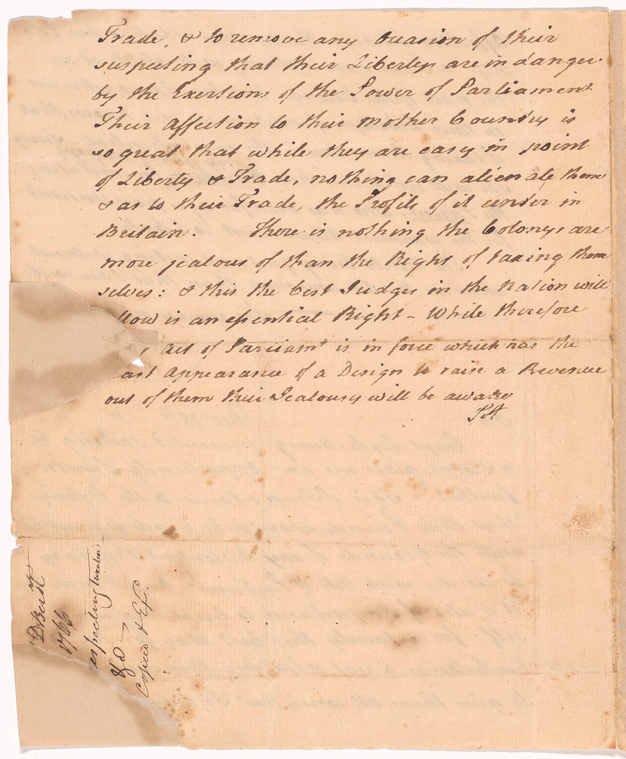 Trade, & to remove any Occasion of their
suspecting that their Libertys are in danger
by the Exertions of the Power of Parliament
Their Affection to their mother Country is
so great that while they are easy in point
of Liberty & Trade, nothing can alienate them
& as to their Trade, the Profits of it center in
Britain. There is nothing the Colonys are
more jealous of than the Right of taxing them
selves: & this the best Judges in the Nation will
llow is an essential Right – While therefore
Act of Parliamt is in force which has the
ast Appearance of a Design to raise a Revenue
out of them their Jealousy will be awake
SA
DBerdt
1766
especting
&c
Copied & Ex.